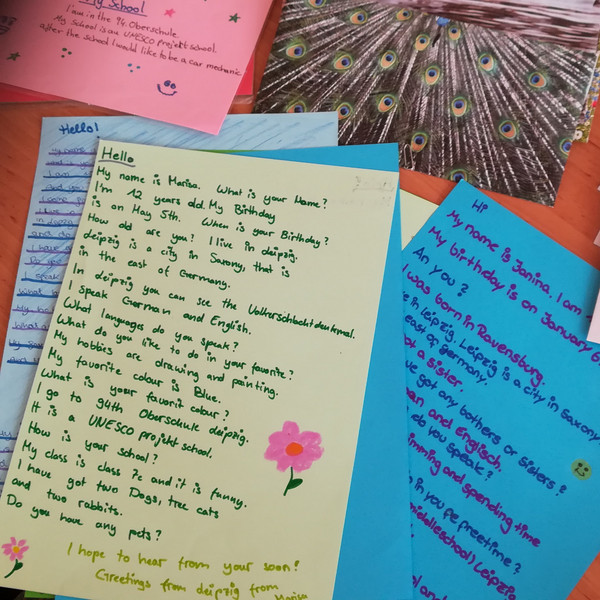 My School
I am in the 94. Oberschule.
My School is an UNESCO projekt-school.
after the school I would like to be a car mechanic
Hello!
Hello
My name is Marisa. What is your Name?
I'm 12 years old. My Birthday
is on May 5th. When is your Birthday?
How old are you? I live in deipzig.
deipzig is a city in Saxony, that is
in the east of Germany.
In deipzig you can see the Völkerschlachtdenkmal.
I speak German and English.
What languages do you speak?
What do you like to do in your favorite?
My hobbies are drawing and painting.
My favorite colour is Blue.
What is your favorit colour?
I go to 94th Oberschule deipzig.
It is a UNESCO projektschool.
How is your school?
My class is class 7c and it is funny.
I have got two Dogs, tree cats
and two rabbits.
Do you have any pets?
I hope to hear from your soon!
Greetings from deipzig from
Marisa
Hi
My name is Janina. I am
My birthday is on January 6
An you?
I was born in Ravensburg.
e in Leipzig. Leipzig is a city in Saxony
east of germany.
ot a sister.
ve got any bothers or sisters?
an and Englisch.
do you speak?
imming and spending time
in you fe freetime?
middleschool) Leipzig
ol and